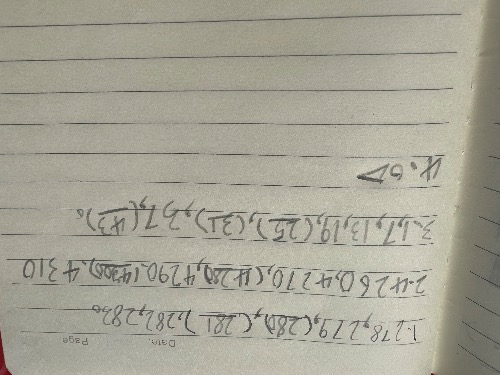 Date. Page
1. 278, 279, (280), (281), 282, 283。
2. 4260, 4270, (4280), 4290, (4300), 4310
3. 1, 7, 13, 19, (25), (31), 37, (43)。
4.